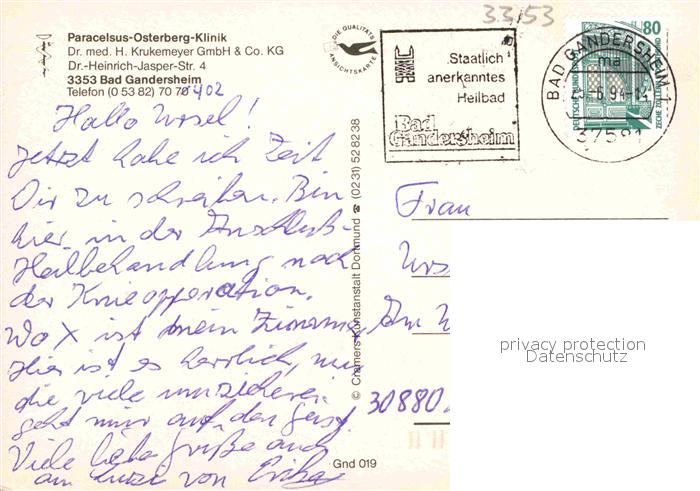 Paracelsus-Osterberg-Klinik
Dr. med. H. Krukemeyer GmbH & Co. KG
Dr.-Heinrich-Jasper-Str. 4
3353 Bad Gandersheim
Telefon (0 53 82) 70 70 402
Hallo Ursel!
Jetzt habe ich Zeit
Dir zu schreiben. Bin
hier in der Anschluß-
Heilbehandlung nach
der Knieopperation.
Wo X ist mein Zimmer.
Hier ist es herrlich, nur
die viele umzieherei
geht mir auf den Geist.
Viele liebe Grüße auch
an von Erika
DIE QUALITÄTS
ANSICHTSKARTE
© Cramers Kunstanstalt Dortmund ☎ (0231) 528238
Gnd 019
33 53
Staatlich
anerkanntes
Heilbad
Bad
Gandersheim
BAD GANDERSHEIM
ma
6.94
37581
80
DEUTSCHE BUNDESPOST
ZECHE ZOLLERN
Frau
Am
30880
privacy protection
Datenschutz